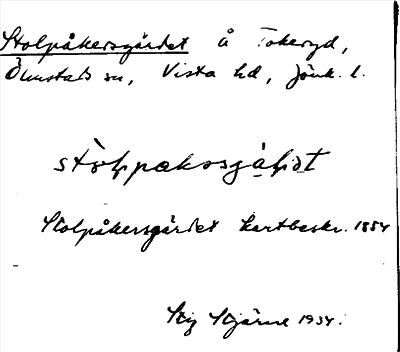 Stolpåkersgärdet å Tokeryd,
Ölmstads sn, Vista hd, Jönk. l.
stòlpakəsgäḷət
Stolpåkersgärdet kartbeskr. 1854
Stig Stjärne 1934.